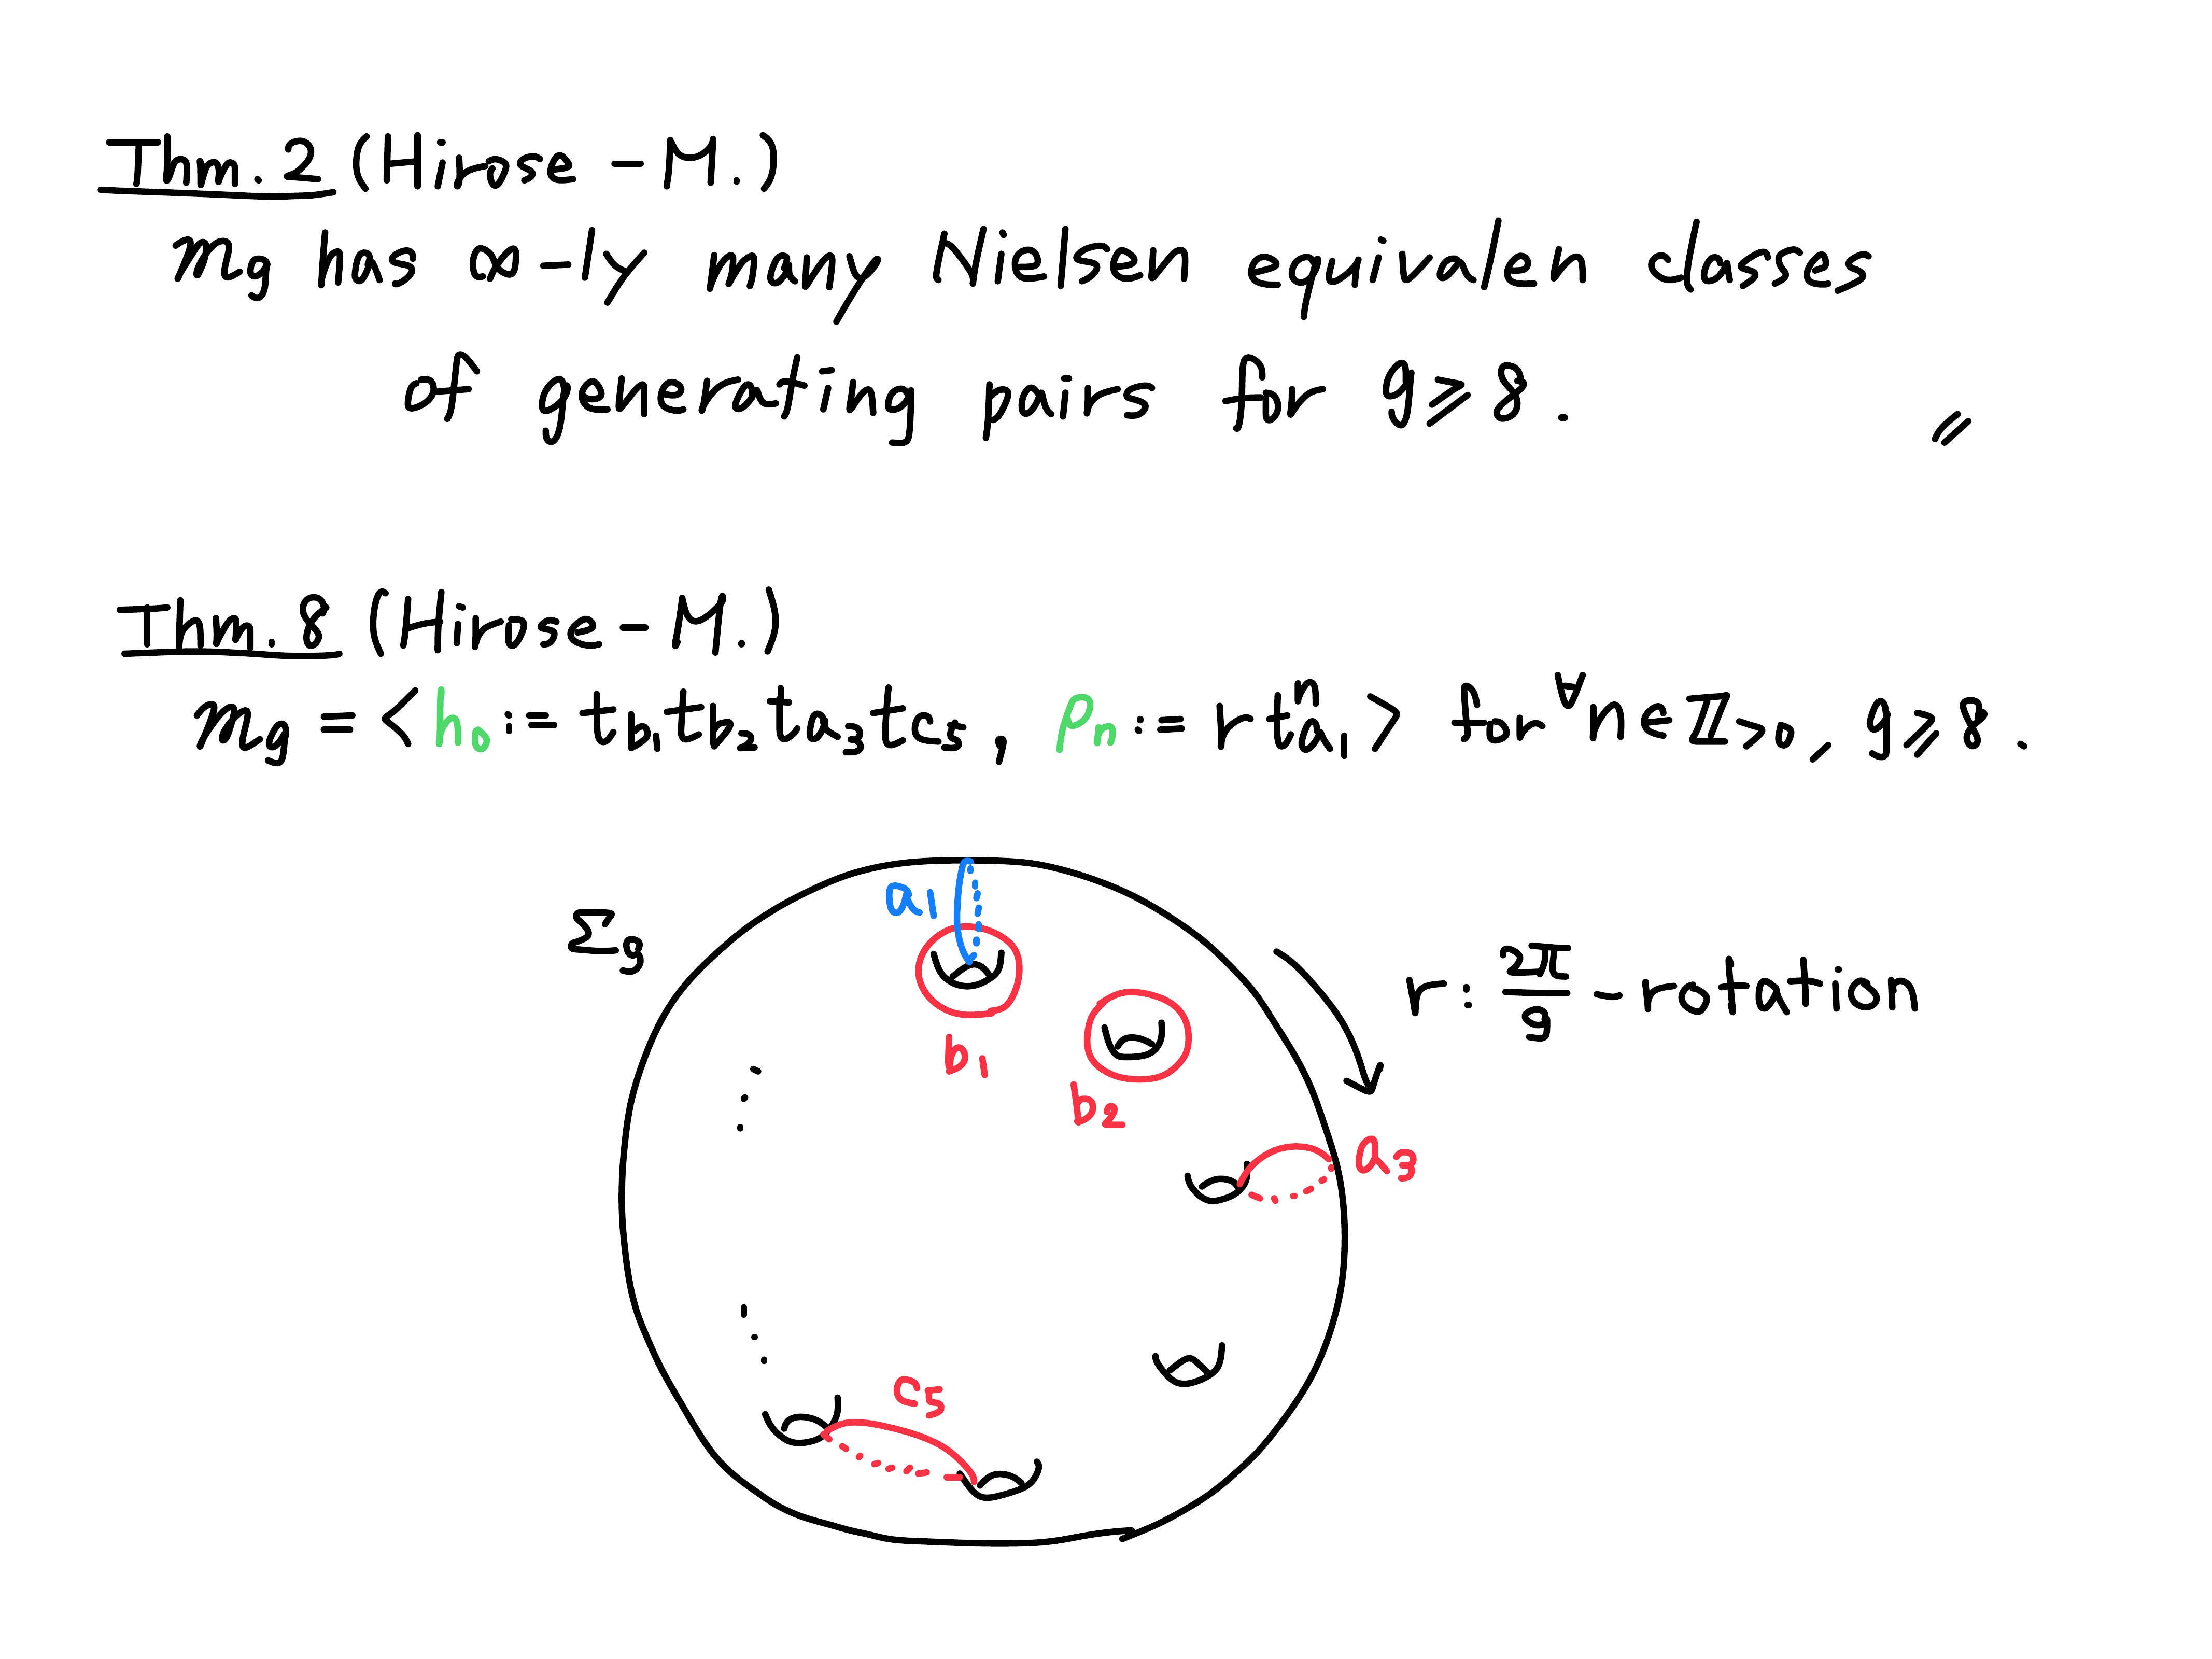 Thm. 2 (Hirose - M.)
Mg has ∞-ly many Nielsen equivalen classes
of generating pairs for g ≥ 8. //
Thm. 8 (Hirose - M.)
Mg = < h₀ := t_{b₁} t_{b₂} t_{a₃} t_{c₅}, ρₙ := r t_{a₁}^n > for ∀n ∈ ℤ_{>0}, g ≥ 8.
Σg
a₁
b₁
b₂
a₃
c₅
r : 2π/g - rotation